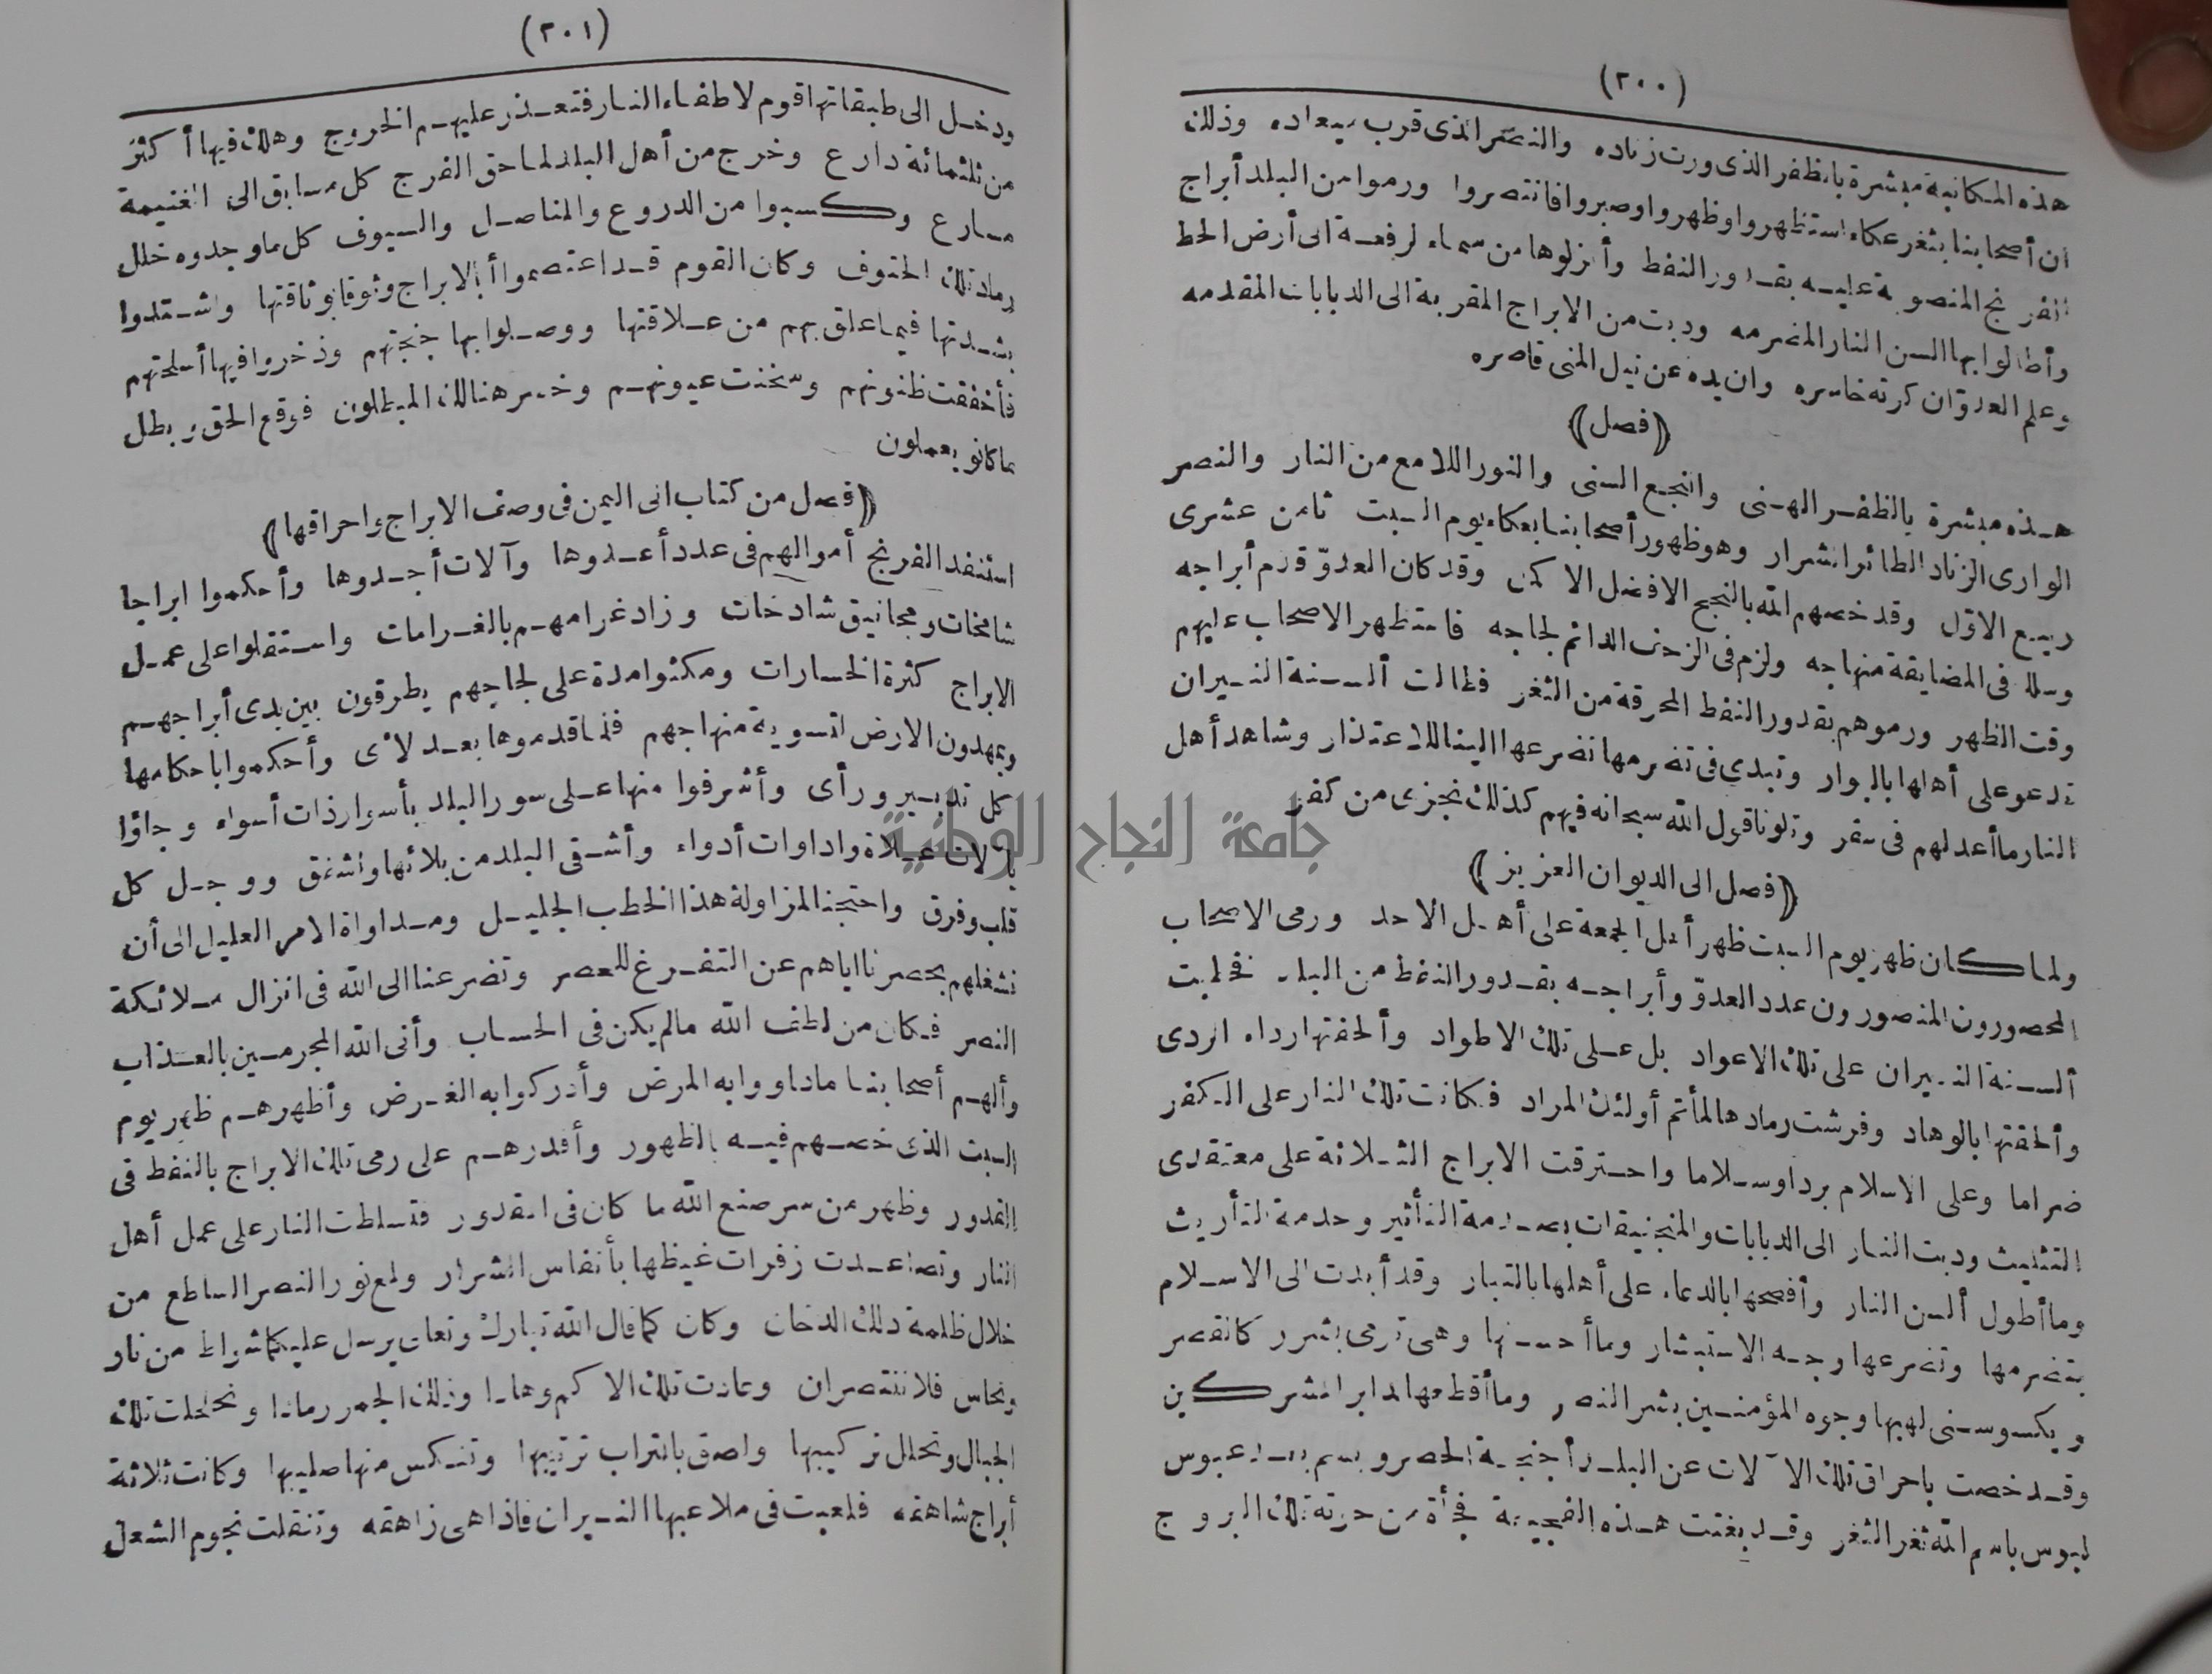 (٢٠٠)
هذه المكاتبة مبشرة بالظفر الذى ورت زناده والنصر الذى قرب ميعاده وذلك
ان أصحابنا بثغر عكاء استظهروا وظهروا وصبروا فانتصروا ورموا من البلد أبراج
الفرنج المنصوبة عليه بقدور النفط وأنزلوها من سماء الرفعة الى أرض الحط
وأطالوا بها السن النار المضرمه ودبت من الابراج المقربة الى الدبابات المقدمه
وعلم العدوّ ان كرته خاسره وان يده عن نيل المنى قاصره
(فصل)
هذه مبشرة بالظفر الهنى والنجح السنى والنور اللامع من النار والنصر
الوارى الزناد الطائر الشرار وهو ظهور أصحابنا بعكاء يوم السبت ثامن عشرى
ربيع الاوّل وقد خصهم الله بالنجح الافضل الاكمل وقد كان العدوّ قدم أبراجه
وسلك فى المضايقة منهاجه ولزم فى الزحف الدائم لجاجه فاستظهر الاصحاب عليهم
وقت الظهر ورموهم بقدور النفط المحرقة من الثغر فطالت ألسنة النيران
تدعو على أهلها بالبوار وتبدى فى تضرمها تضرعها الينا للاعتذار وشاهد أهل
النار ما أعد لهم فى سقر وتلونا قول الله سبحانه فيهم كذلك نجزى من كفر
(فصل الى الديوان العزيز)
ولما كان ظهر يوم السبت ظهر أهل الجمعة على أهل الاحد ورمى الاصحاب
المحصورون المنصورون عدد العدوّ وأبراجه بقدور النفط من البلد فخلبت
ألسنة النيران على تلك الاعواد بل على تلك الاطواد وألحفتها رداء الردى
وألحقتها بالوهاد وفرشت رمادها لمأتم أولئك المراد فكانت تلك النار على الكفر
ضراما وعلى الاسلام بردا وسلاما واحترقت الابراج الثلاثة على معتقدى
التثليث ودبت النار الى الدبابات والمنجنيقات بصدمة التأثير وحدمة التأريث
وما أطول ألسن النار وأفصحها بالدعاء على أهلها بالتبار وقد أبدت الى الاسلام
بتضرمها وتضرعها وجه الاستبشار وما أحسنها وهى ترمى بشرر كالقصر
ويكسو سنى لهبها وجوه المؤمنين بشر النصر وما أقطعها لدابر المشركين
وقد خصت باحراق تلك الآلات عن البلد أجنحة الحصر وبسم بعد عبوس
لبوس باسم الله ثغر الثغر وقد بغتت هذه الفجيعة فجأة من حوته تلك البروج
(٢٠١)
ودخل الى طبقاتها قوم لاطفاء النار فتعذر عليهم الخروج وهلك فيها أكثر
من ثلثمائة دارع وخرج من أهل البلد لما حق الفرج كل مسابق الى الغنيمة
مسارع وكسبوا من الدروع والمناصل والسيوف كل ما وجدوه خلل
رماد تلك الحتوف وكان القوم قد اعتصموا أ بالابراج وثوقا بوثاقتها واشتدوا
بشدتها فيما علق بهم من علاقتها ووصلوا بها جنحتهم وذخروا فيها أسلحتهم
فأخفقت ظنونهم وسخنت عيونهم وخسر هنالك المبطلون فوقع الحق وبطل
ما كانو يعملون
(فصل من كتاب الى اليمن فى وصف الابراج واحراقها)
استنفد الفرنج أموالهم فى عدد أعدوها وآلات أجدوها وأحكموا ابراجا
شامخات ومجانيق شادخات وزاد غرامهم بالغرامات واستقلوا على عمل
الابراج كثرة الخسارات ومكثوا مدة على لجاجهم يطرقون بين يدى أبراجهم
ويمهدون الارض لتسوية منهاجهم فلما قدموها بعد لأى وأحكموا باحكامها
كل تدبير ورأى وأشرفوا منها على سور البلد بأسوار ذات أسواء وجاؤا
بآلات علاة واداوات أدواء وأشفى البلد من بلائها واشفق ووجل كل
قلب وفرق واحتجنا لمزاولة هذا الخطب الجليل ومداواة الامر العليل الى أن
نشغلهم بحصرنا اياهم عن التفرغ للعصر وتضرعنا الى الله فى انزال ملائكة
النصر فكان من لطف الله ما لم يكن فى الحساب وأتى الله المجرمين بالعذاب
وألهم أصحابنا ما داووا به المرض وأدركوا به الغرض وأظهرهم ظهر يوم
السبت الذى خصهم فيه بالظهور وأقدرهم على رمى تلك الابراج بالنفط فى
القدور وظهر من سر صنع الله ما كان فى القدور فتسلطت النار على عمل أهل
النار وتصاعدت زفرات غيظها بأنفاس الشرار ولمع نور النصر الساطع من
خلال ظلمة ذلك الدخان وكان كما قال الله تبارك وتعالى يرسل عليكما شواظ من نار
ونحاس فلا تنتصران وعادت تلك الاكم وهادا وذلك الجمر رمادا وتخلخلت تلك
الجبال وتحلل تركيبها ولصق بالتراب ترتيبها وتنكس منها صليبها وكانت ثلاثة
أبراج شاهقه فلعبت فى ملاعبها النيران فاذا هى زاهقه وتنقلت نجوم الشعل
جامعة النجاح الوطنية